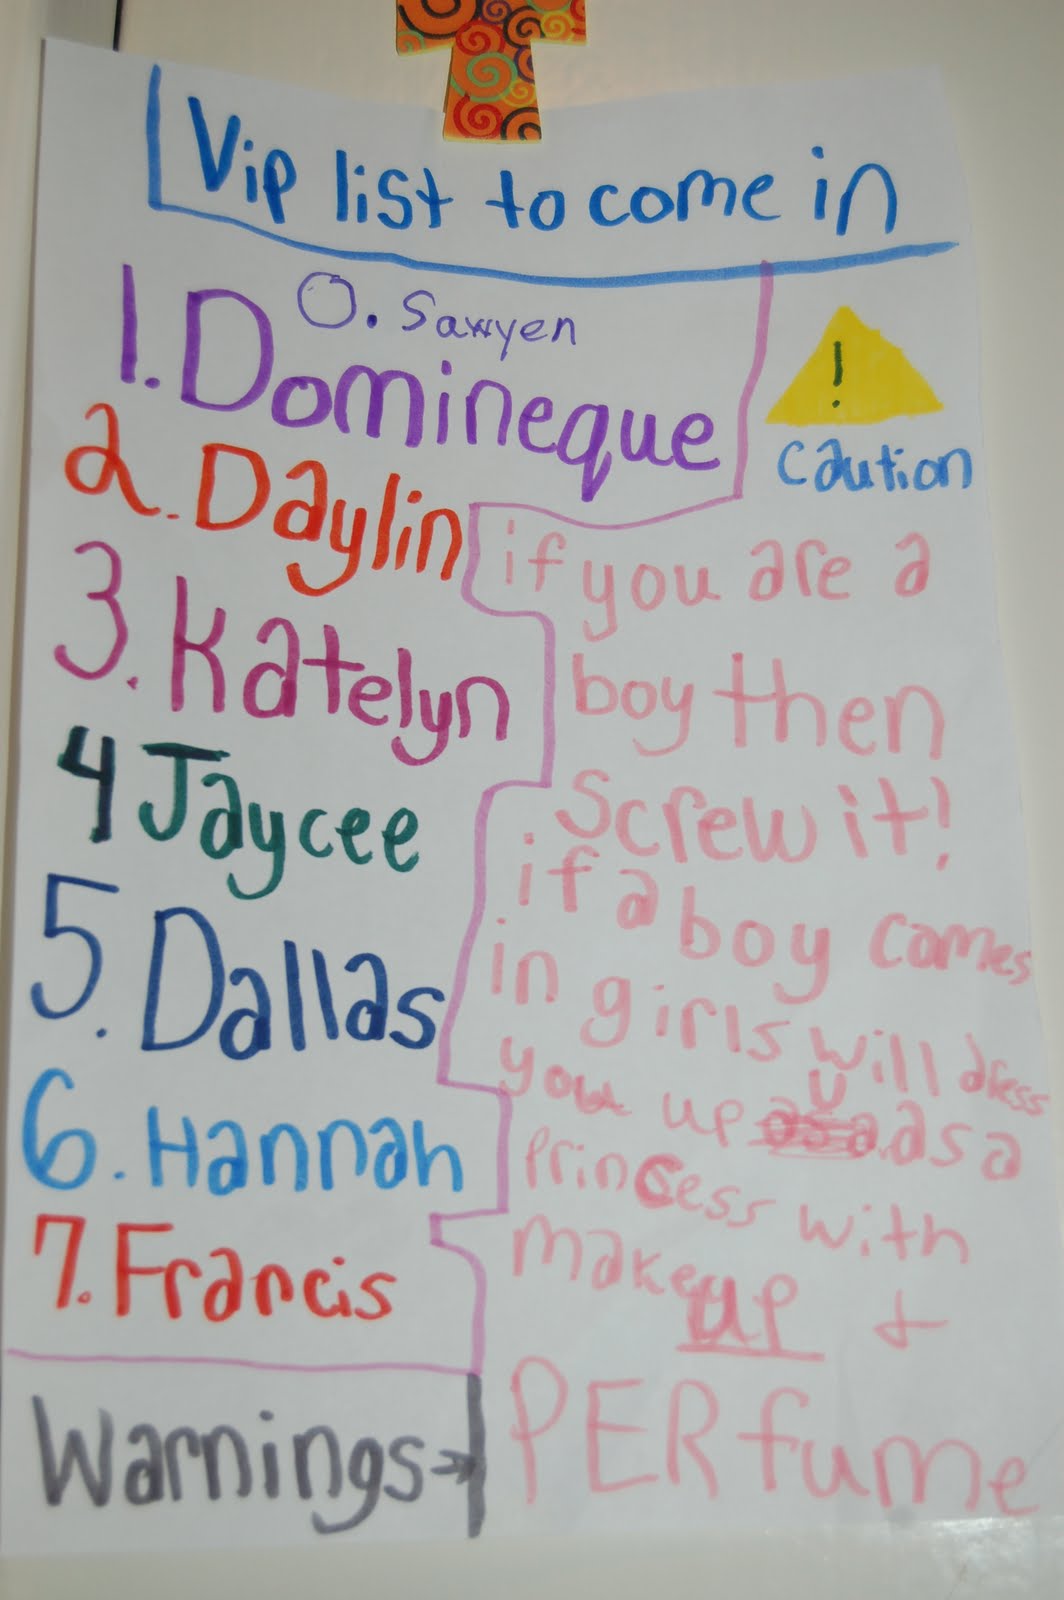 Vip list to come in
O. Sawyen
1. Domineque
2. Daylin
3. Katelyn
4 Jaycee
5. Dallas
6. Hannah
7. Francis
Warnings
!
caution
if you are a
boy then
screw it!
if a boy comes
in girls will dress
you up as a
princess with
makeup &
PERfume